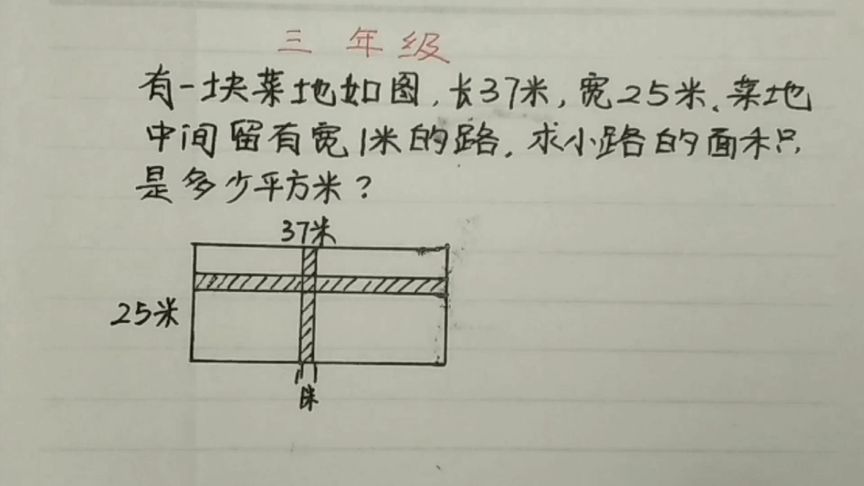 三年级
有一块菜地如图，长37米，宽25米。菜地
中间留有宽1米的路，求小路的面积
是多少平方米？
37米
25米
1米